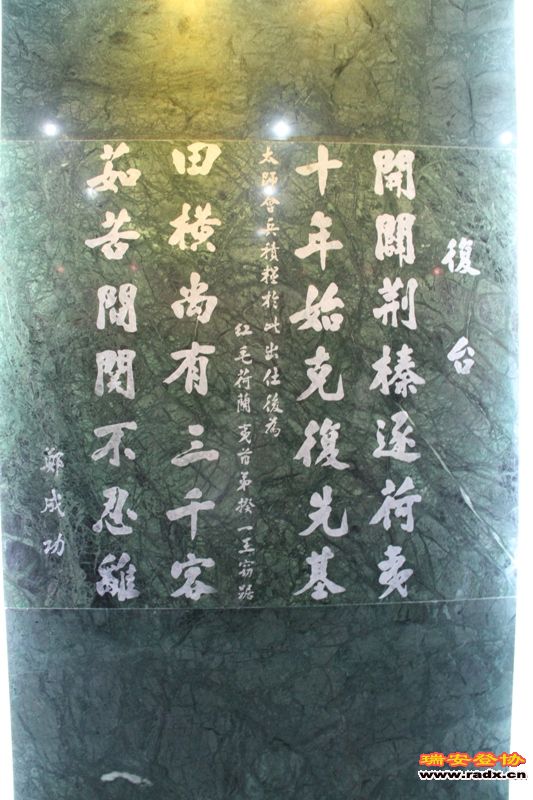 復台
開闢荆榛逐荷夷
十年始克復先基
太師會兵積糧於此出仕後為
紅毛荷蘭夷酋弟揆一王竊踞
田橫尚有三千客
茹苦間関不忍離
鄭成功
瑞安登协
www.radx.cn